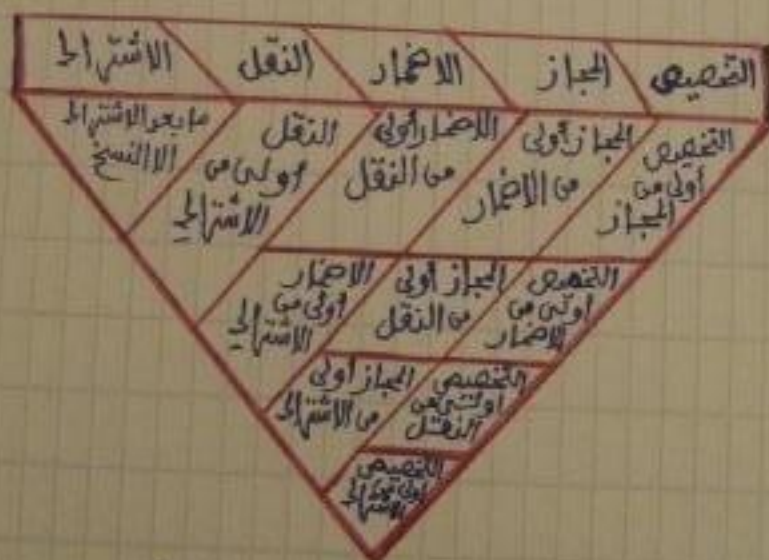 التخصيص المجاز الاضمار النقل الاشتراك
التخصيص
أولى من
المجاز
المجاز أولى
من الاضمار
الاضمار أولى
من النقل
النقل
أولى من
الاشتراك
ما بعد الاشتراك
الا النسخ
التخصيص
أولى من
الاضمار
المجاز أولى
من النقل
الاضمار
أولى من
الاشتراك
التخصيص
أولى من
النقل
المجاز أولى
من الاشتراك
التخصيص
أولى من
الاشتراك